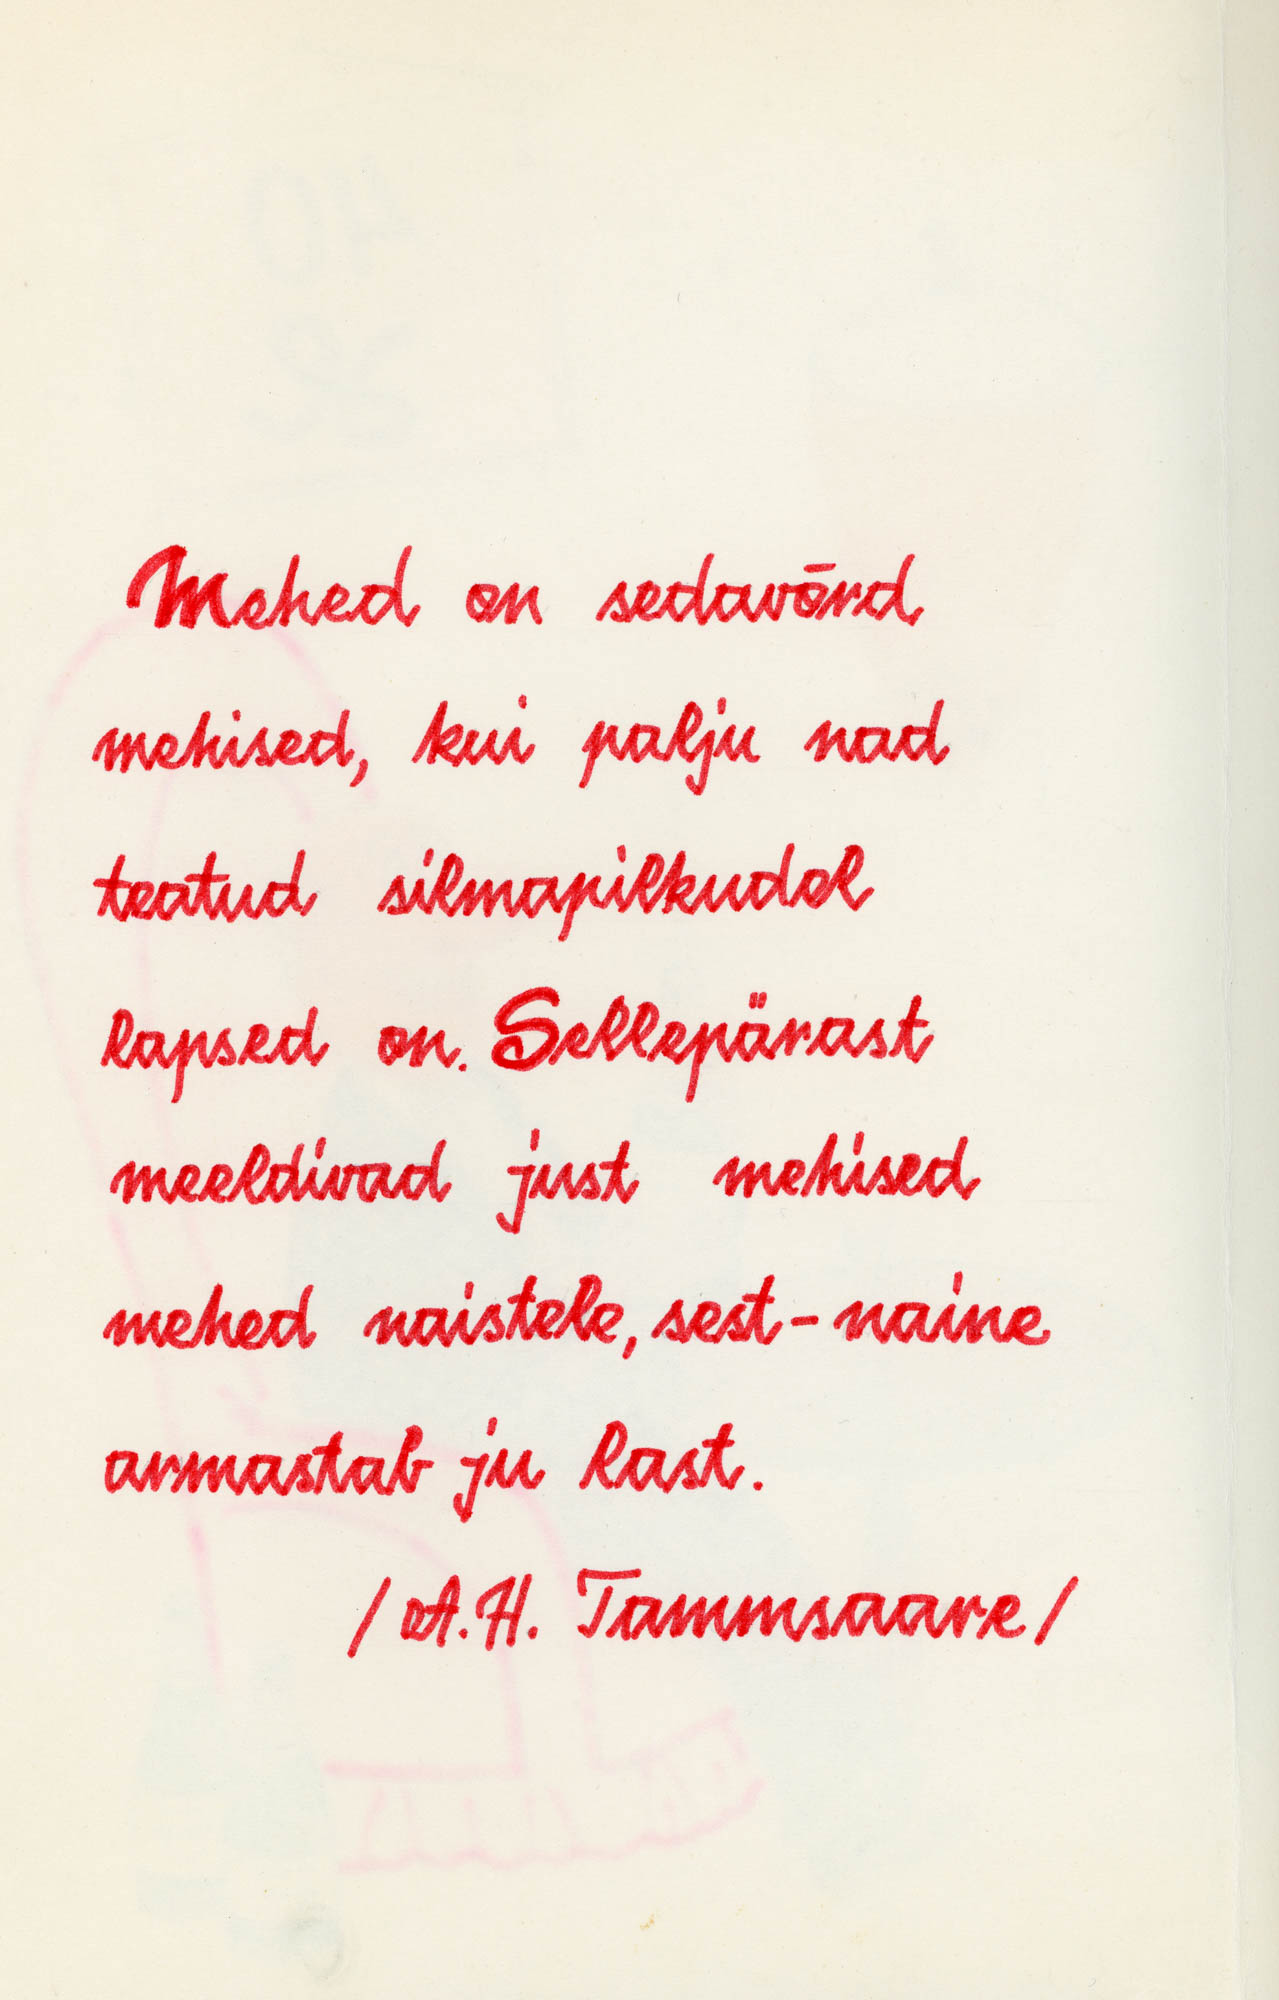 Mehed on sedavõrd
mehised, kui palju nad
teatud silmapilkudel
lapsed on. Sellepärast
meeldivad just mehised
mehed naistele, sest - naine
armastab ju last.
/A.H. Tammsaare/